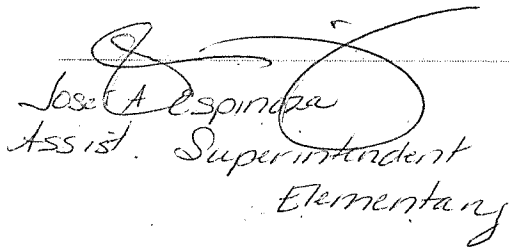 Jose A Espinoza
Assist. Superintendent
Elementary